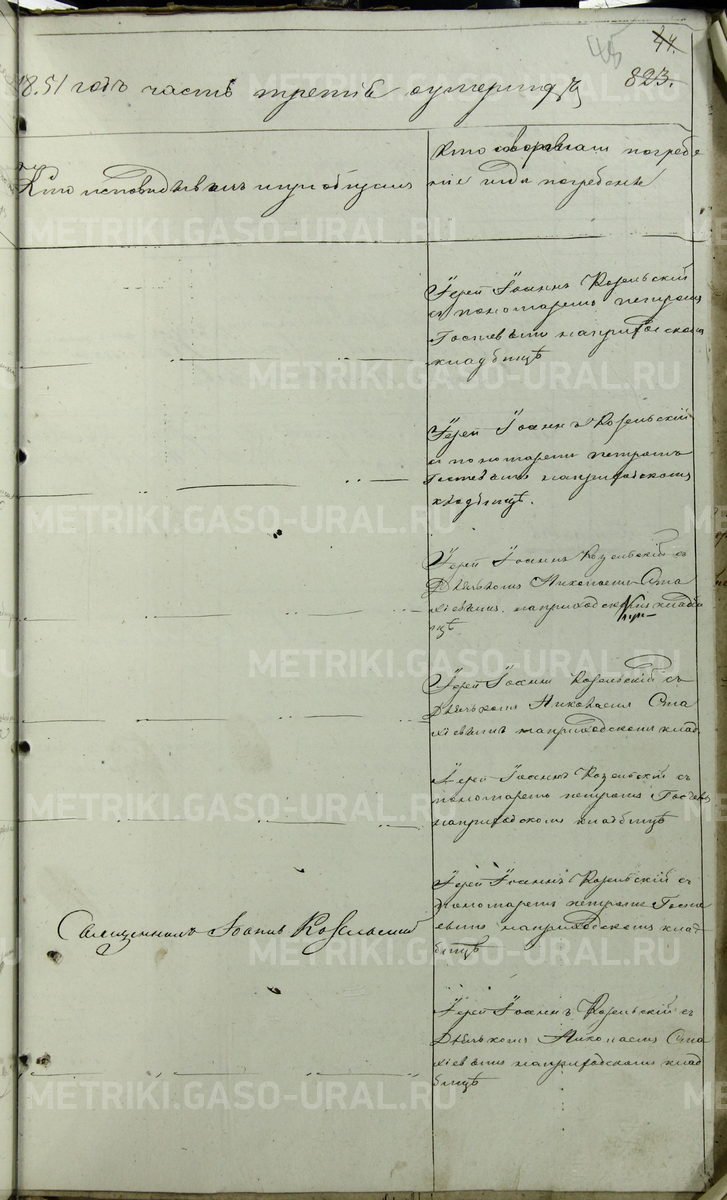 44.
45
823.
1851 годъ часть третія о умершихъ
Кто исповѣдывалъ и пріобщалъ
Кто совершалъ погребе
ніе и гдѣ погребены
Іерей Іоаннъ Козельскій
съ пономаремъ Петромъ
на приходскомъ
кладбищѣ
Іерей Іоаннъ Козельскій
съ пономаремъ Петромъ
на приходскомъ
кладбищѣ.
Іерей Іоаннъ Козельскій съ
Дьячкомъ Николаемъ Ста
хіевымъ на приходскомъ кладби
щѣ.
Іерей Іоаннъ Козельскій съ
Дьячкомъ Николаемъ Ста
хіевымъ на приходскомъ клад.
Іерей Іоаннъ Козельскій съ
пономаремъ Петромъ
на приходскомъ кладбищѣ
Священникъ Іоаннъ Козельскій
Іерей Іоаннъ Козельскій съ
пономаремъ Петромъ
на приходскомъ клад
бищѣ
Іерей Іоаннъ Козельскій съ
Дьячкомъ Николаемъ Ста
хіевымъ на приходскомъ клад
бищѣ
METRIKI.GASO-URAL.RU